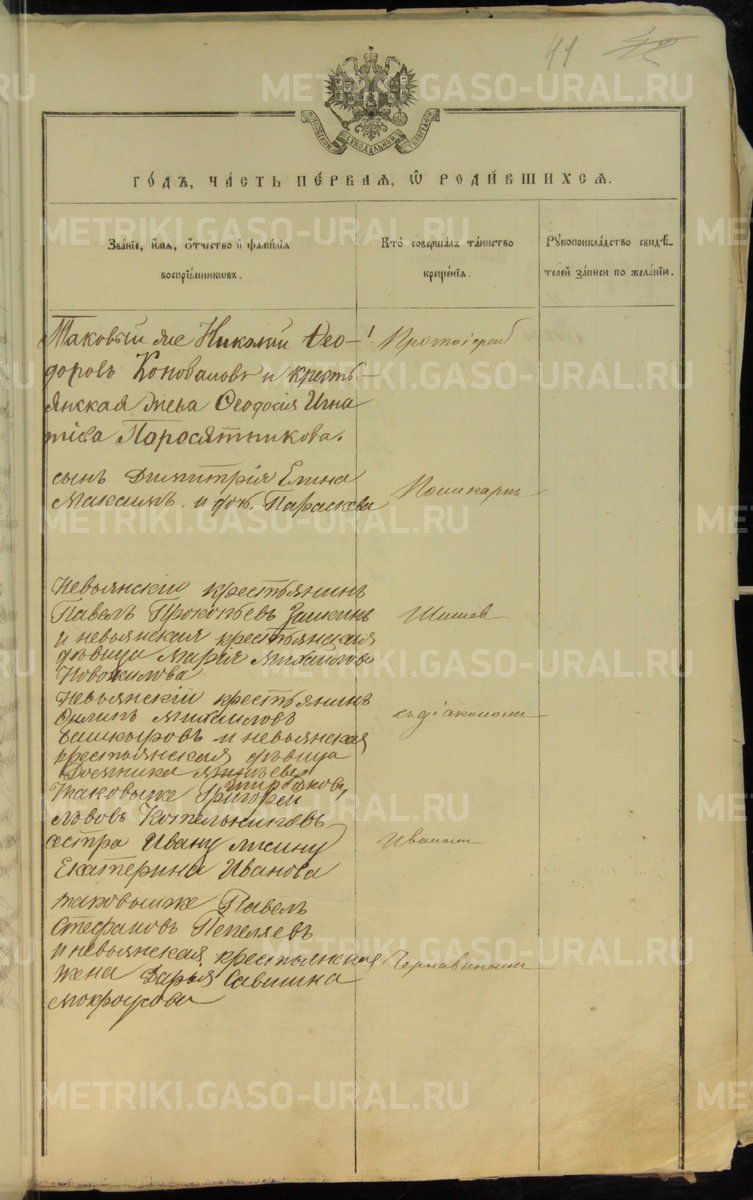 41
МОСКОВСКОЙ СѴНОДАЛЬНОЙ ТИПОГРАФІИ
ГО́ДЪ, ЧА́СТЬ ПЕ́РВАЯ, Ѡ҆ РОДИ́ВШИХСЯ.
Зва́нїе, и҆́мя, ѻ҆́тчество и҆ фами́лїя
воспрїе́мникѡвъ.
Кто̀ соверша́лъ та́инство
креще́нїя.
Рꙋкоприкла́дство свидѣ́-
телей за́писи по жела́нїю.
Таковый же Николай Ѳео-
доровъ Коноваловъ и кресть-
янская жена Ѳеодосія Игна
тіева Поросятникова.
Протоіерей
сынъ Димитрія Елина
Максимъ и доч. Параскева
Поликарпъ
Невьянскій крестьянинъ
Павелъ Прокопьевъ Заикинъ
и невьянская крестьянская
дѣвица Марія Михайлова
Новожилова
Шишев
Невьянскій крестьянинъ
Филипъ Михаиловъ
Башкировъ и невьянская
крестьянская дѣвица
Домника
съ діакономъ
Таковыйже Григорей
Львовъ Котельниковъ
сестра Ивану Лисину
Екатерина Иванова
Иваномъ
таковыйже Павелъ
Стефановъ Пепеляевъ
и невьянская крестьянская
жена Дарья Савишна
Мокроусова
Чернавинымъ
METRIKI.GASO-URAL.RU